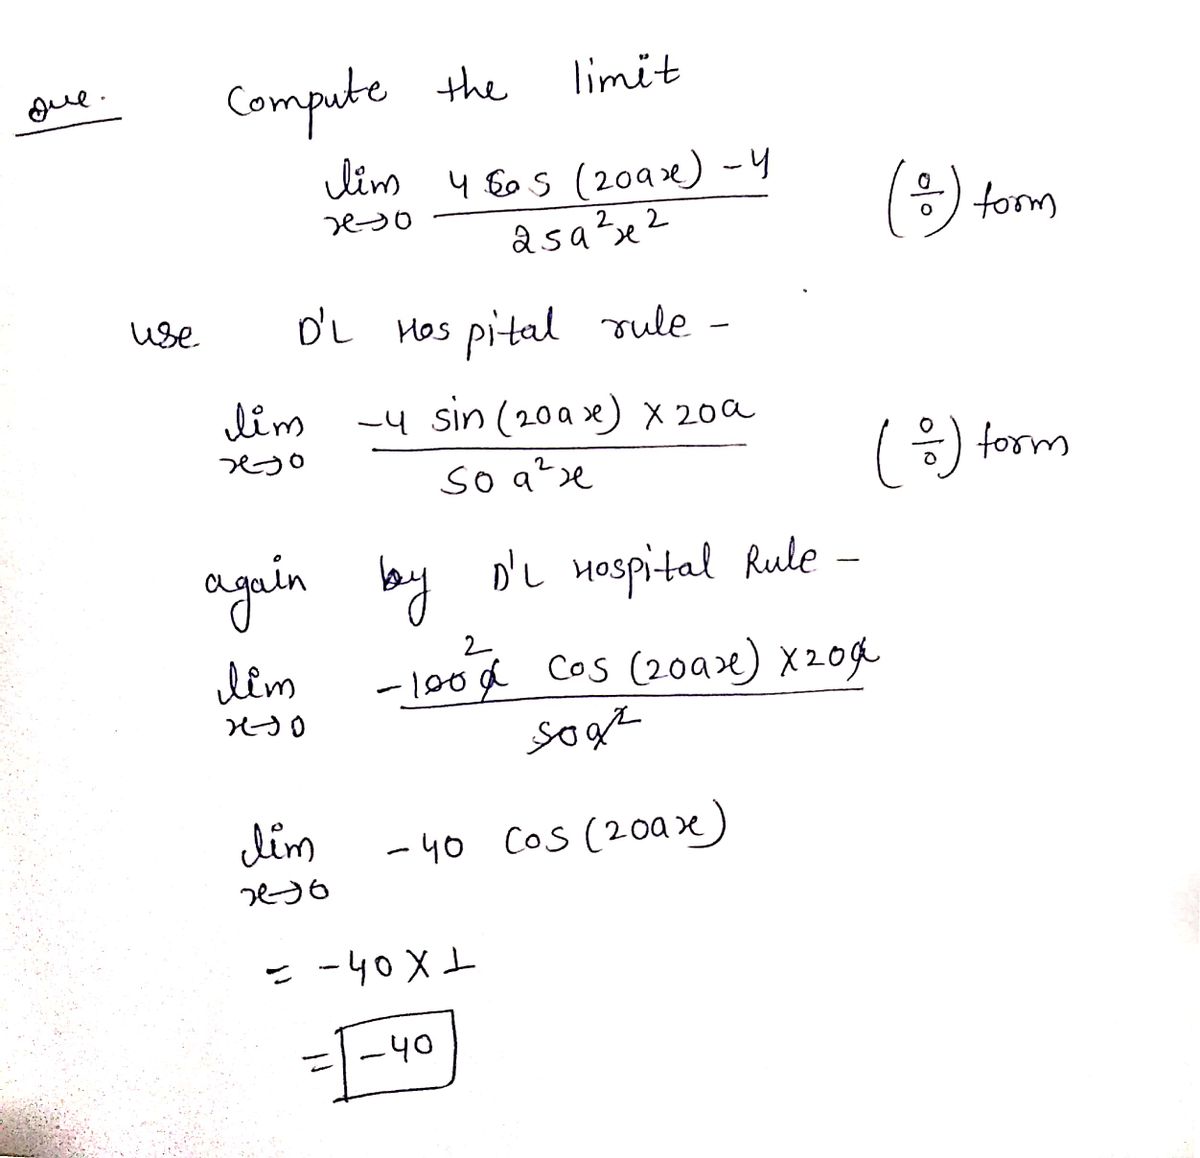 Que. Compute the limit
lim x→0 (4 cos (20ax) - 4) / (25a²x²) (0/0) form
use D'L Hospital rule -
lim x→0 (-4 sin(20ax) × 20a) / (50 a²x) (0/0) form
again by D'L Hospital Rule -
lim x→0 (-100a cos (20ax) × 20a) / (50a²) 2
lim x→0 -40 cos (20ax)
= -40 × 1
= -40